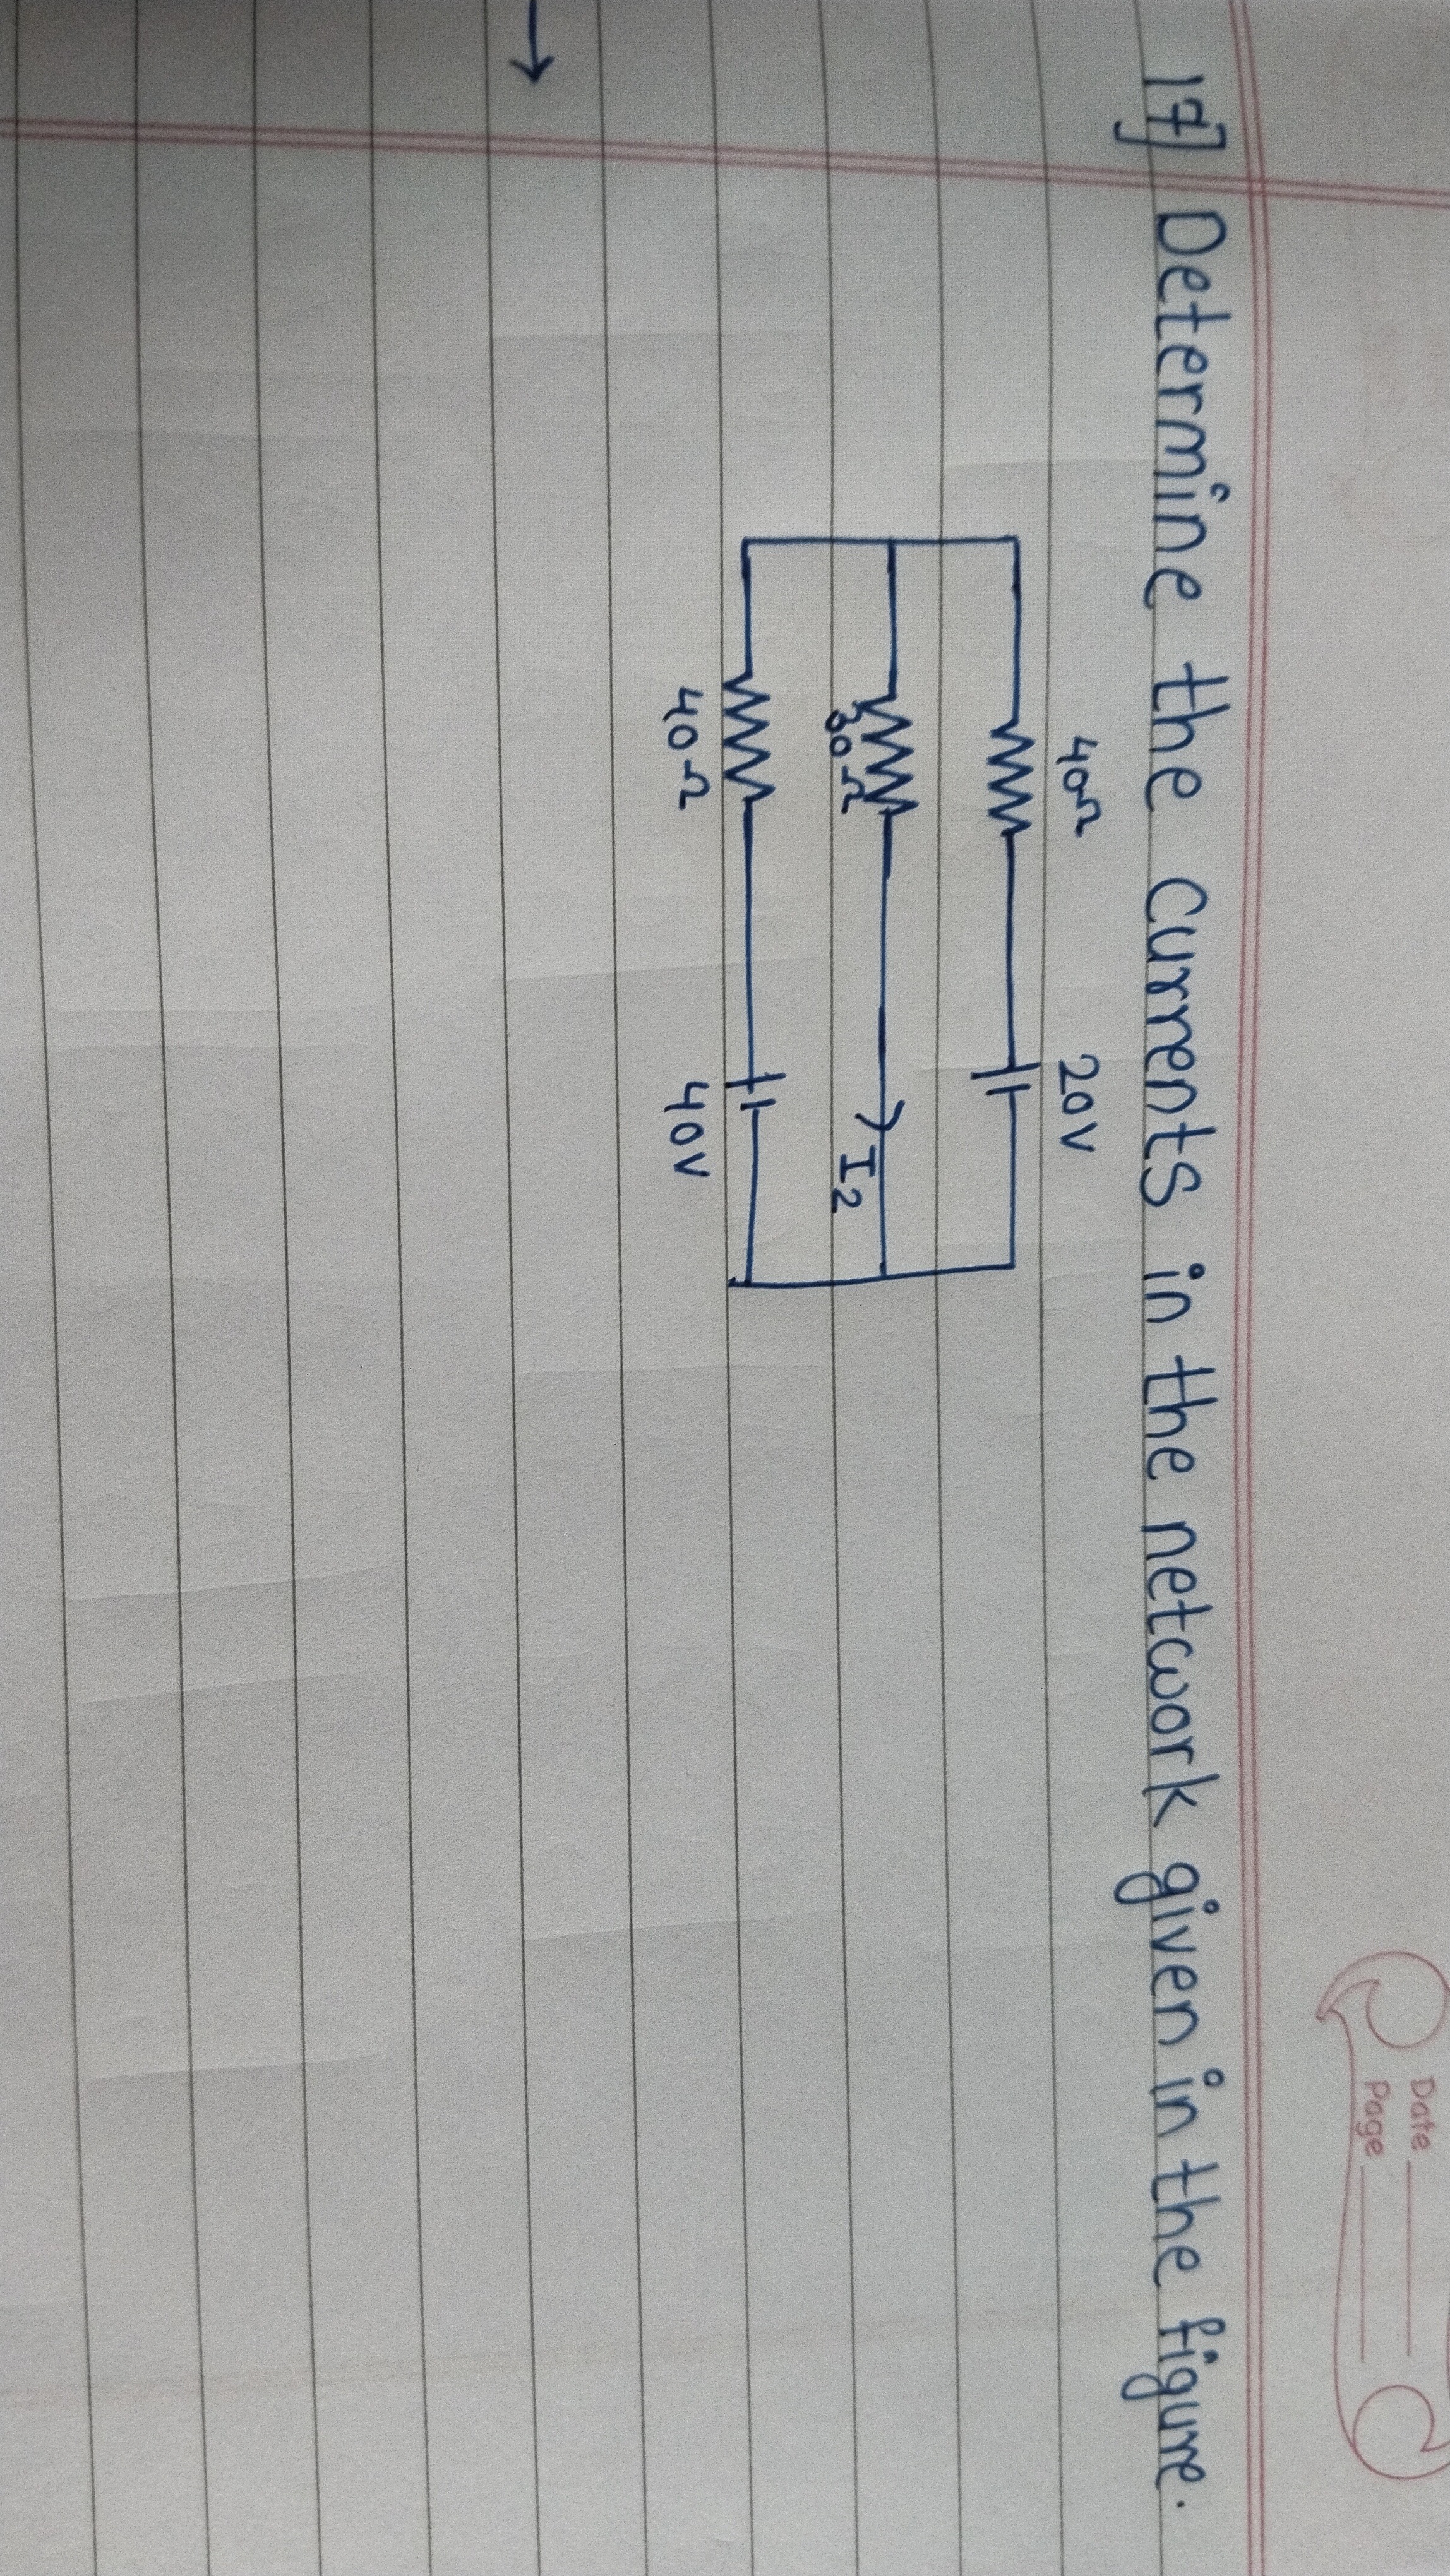 Date
Page
17] Determine the currents in the network given in the figure.
40Ω 20V
30Ω I2
40Ω 40V
→